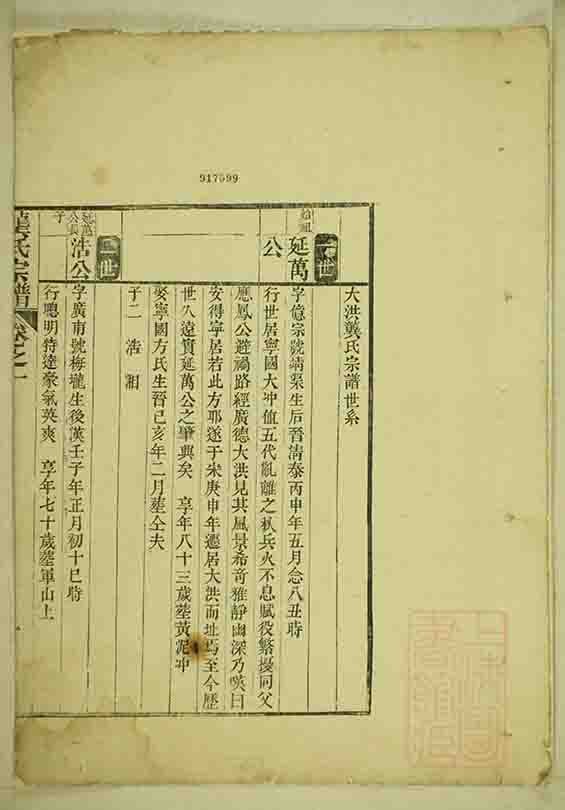 917599
大洪龔氏宗譜世系
一世
始祖
延萬公
字億宗號靖渠生后晉清泰丙申年五月念八丑時
行世居寧國大冲值五代亂離之秋兵火不息賦役繁擾同父
應鳳公避禍路經廣德大洪見其風景希奇雅靜幽深乃嘆曰
安得寧居若此方耶遂于宋庚申年遷居大洪而址焉至今歷
世久遠實延萬公之肇興矣 享年八十三歲塟黃泥冲
娶寧國方氏生晉己亥年二月塟仝夫
子二 浩 湘
二世
延萬公長子
浩公
字廣甫號梅壠生後漢壬子年正月初十巳時
行聰明特達豪氣英爽 享年七十歲塟軍山上
龔氏宗譜 卷之一